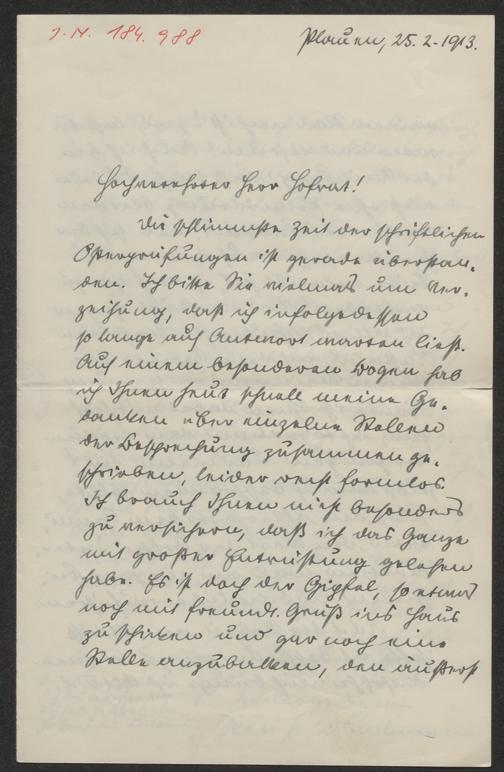 J. N. 184.988
Plauen, 25. 2. 1913.
Hochverehrter Herr Hofrat!
Die schlimmste Zeit der schriftlichen
Osterprüfungen ist gerade überstan-
den. Ich bitte Sie vielmals um Ver-
zeihung, daß ich infolgedessen
so lange auf Antwort warten ließ.
Auf einem besonderen Bogen hab
ich Ihnen heut schnell meine Ge-
danken über einzelne Stellen
der Besprechung zusammen ge-
schrieben, leider recht formlos.
Ich brauch Ihnen nicht besonders
zu versichern, daß ich das Ganze
mit großer Entrüstung gelesen
habe. Es ist doch der Gipfel, so etwas
noch mit freundl. Gruß ins Haus
zu schicken und gar noch eine
Stelle anzubacken, den äußerst